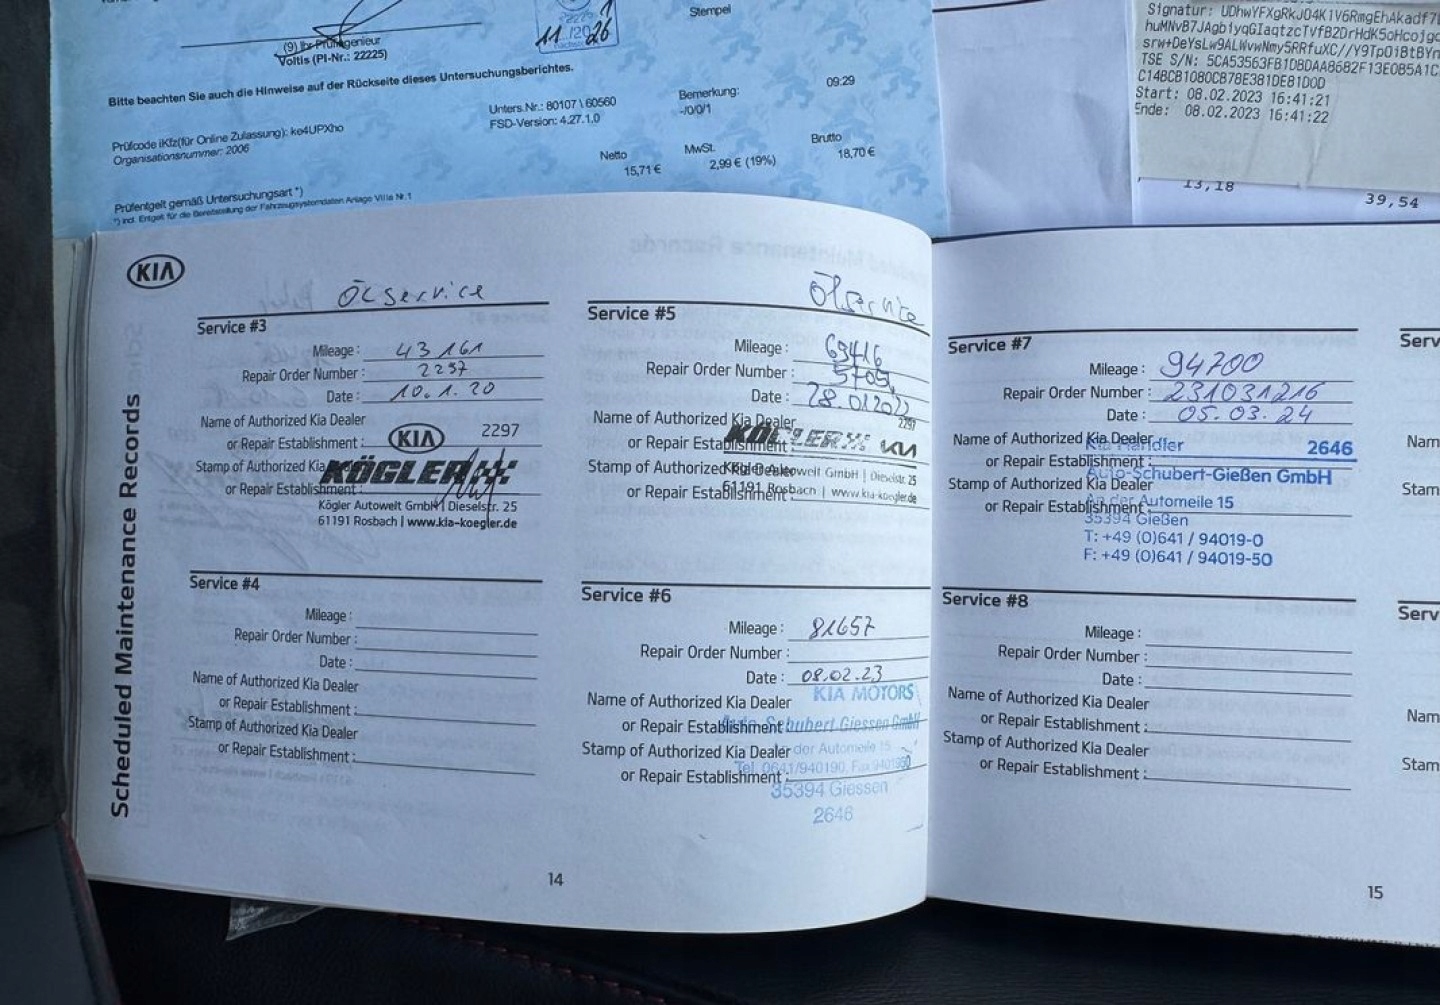 (9) Ihr Prüfingenieur
Voltis (PI-Nr.: 22225)
11/2026
Stempel
Bitte beachten Sie auch die Hinweise auf der Rückseite dieses Untersuchungsberichtes.
Prüfcode iKfz(für Online Zulassung): ko4UPXho
Organisationsnummer: 2006
Unters.Nr.: 80107 \ 60560
FSD-Version: 4.27.1.0
Bemerkung:
-/0/0/1
09:29
Netto
15,71 €
MwSt.
2,99 € (19%)
Brutto
18,70 €
Prüfentgelt gemäß Untersuchungsart *)
*) incl. Entgelt für die Bereitstellung der Fahrzeugsystemdaten Anlage VIIIa Nr.1
TSE S/N: 5CA53563FB1DBDAA8682F13E0B5A1C
C14BCB1080CB78E381DE81D0D
Start: 08.02.2023 16:41:21
Ende: 08.02.2023 16:41:22
13,18
39,54
KIA
Scheduled Maintenance Records
Ölservice
Service #3
Mileage : 43161
Repair Order Number : 2297
Date : 10.1.20
Name of Authorized Kia Dealer
or Repair Establishment :
KIA 2297
Stamp of Authorized Kia Dealer
or Repair Establishment :
KÖGLER
Kögler Autowelt GmbH | Dieselstr. 25
61191 Rosbach | www.kia-koegler.de
Service #4
Mileage :
Repair Order Number :
Date :
Name of Authorized Kia Dealer
or Repair Establishment :
Stamp of Authorized Kia Dealer
or Repair Establishment :
14
Ölservice
Service #5
Mileage : 69416
Repair Order Number :
Date : 28.01.2022
Name of Authorized Kia Dealer
or Repair Establishment :
2297
KÖGLER KIA
Stamp of Authorized Kia Dealer
or Repair Establishment :
Kögler Autowelt GmbH | Dieselstr. 25
61191 Rosbach | www.kia-koegler.de
Service #6
Mileage : 81657
Repair Order Number :
Date : 08.02.23
Name of Authorized Kia Dealer
or Repair Establishment :
Stamp of Authorized Kia Dealer
or Repair Establishment :
KIA MOTORS
Auto-Schubert Giessen GmbH
der Automeile 15
Tel. 0641/940190, Fax
35394 Giessen
2646
Service #7
Mileage : 94700
Repair Order Number : 231031216
Date : 05.03.24
Name of Authorized Kia Dealer
or Repair Establishment :
Stamp of Authorized Kia Dealer
or Repair Establishment :
Kia Händler 2646
Auto-Schubert-Gießen GmbH
An der Automeile 15
35394 Gießen
T: +49 (0)641 / 94019-0
F: +49 (0)641 / 94019-50
Service #8
Mileage :
Repair Order Number :
Date :
Name of Authorized Kia Dealer
or Repair Establishment :
Stamp of Authorized Kia Dealer
or Repair Establishment :
15